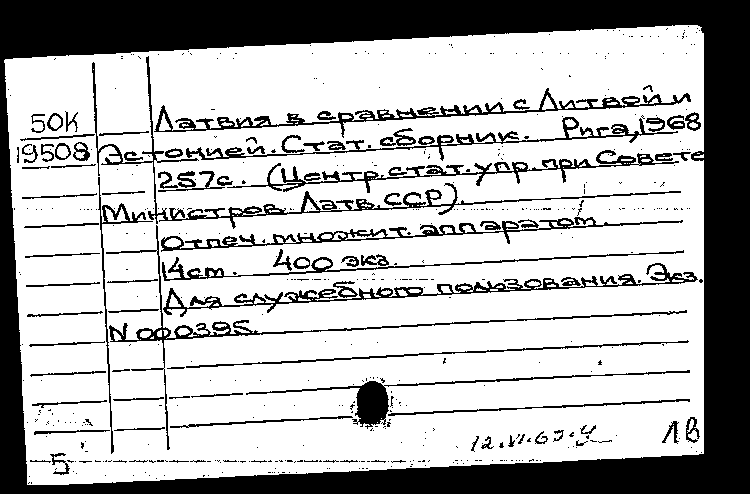 50К Латвия в сравнении с Литвой и
19508 Эстонией. Стат. сборник. Рига, 1968
257с. (Центр. стат. упр. при Совете
Министров Латв. ССР).
Отпеч. множит. аппаратом.
14cm. 400 экз.
Для служебного пользования. Экз.
N 000395.
12.VI.69.
1В
5